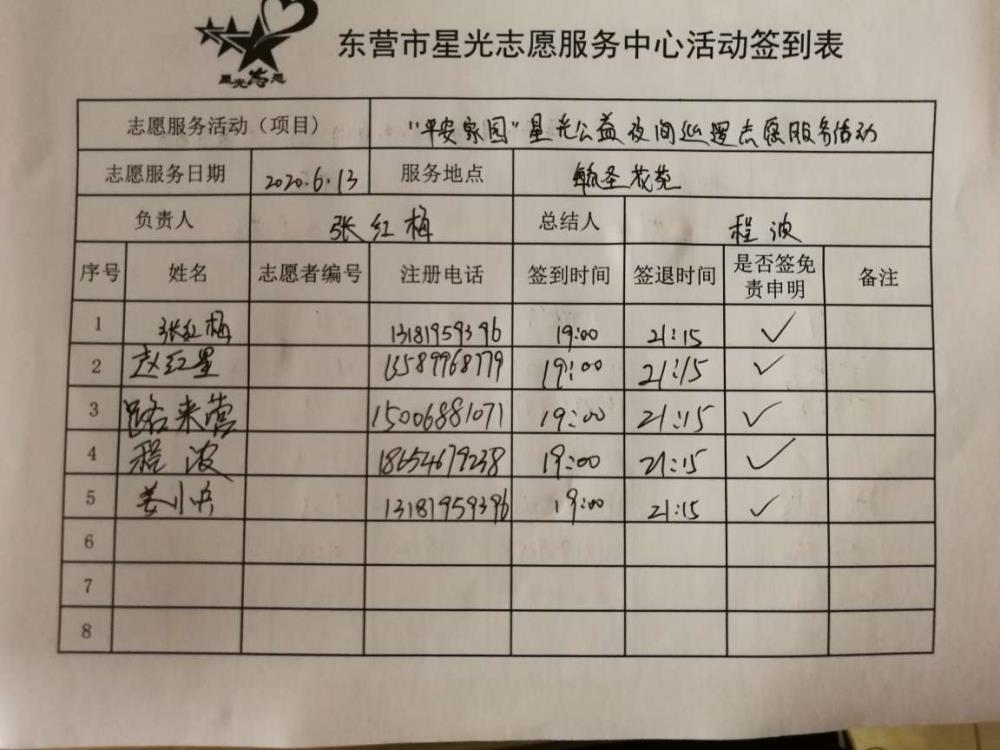 星光志愿
东营市星光志愿服务中心活动签到表
志愿服务活动（项目） "平安家园"星光公益夜间巡逻志愿服务活动
志愿服务日期 2020.6.13 服务地点 毓圣茂苑
负责人 张红梅 总结人 程波
序号 姓名 志愿者编号 注册电话 签到时间 签退时间 是否签免责申明 备注
1 张红梅 13181959396 19:00 21:15 ✓
2 赵红星 15589968779 19:00 21:15 ✓
3 路来营 15006881071 19:00 21:15 ✓
4 程波 18654679238 19:00 21:15 ✓
5 小兵 13181959396 19:00 21:15 ✓
6
7
8